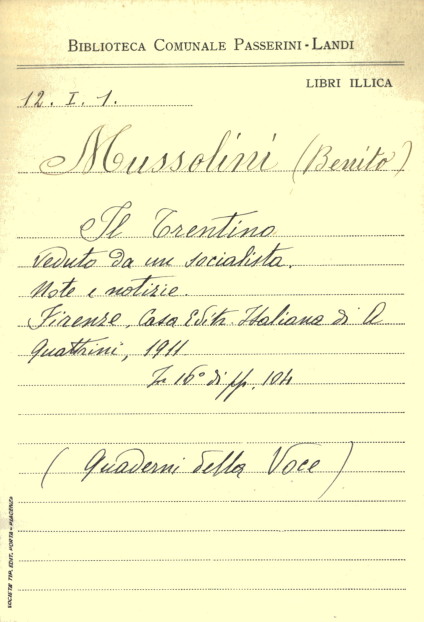 BIBLIOTECA COMUNALE PASSERINI - LANDI
LIBRI ILLICA
12. I. 1.
Mussolini (Benito)
Il Trentino
veduto da un socialista.
Note e notizie.
Firenze, Casa Editr. Italiana di A
Quattrini, 1911
In 16° di pp. 104
(Quaderni della Voce)
SOCIETÀ TIP. EDIT. PORTA - PIACENZA